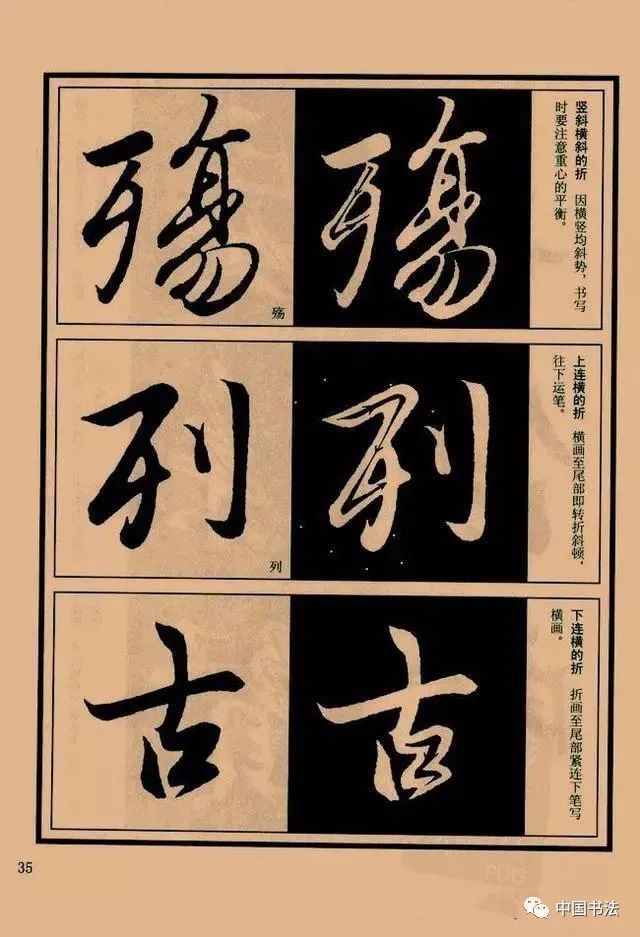 竖斜横斜的折　因横竖均斜势，书写
时要注意重心的平衡。
殇
殇
殇
上连横的折　横画至尾部即转折斜顿，
往下运笔。
列
列
列
下连横的折　折画至尾部紧连下笔写
横画。
古
古
35
中国书法